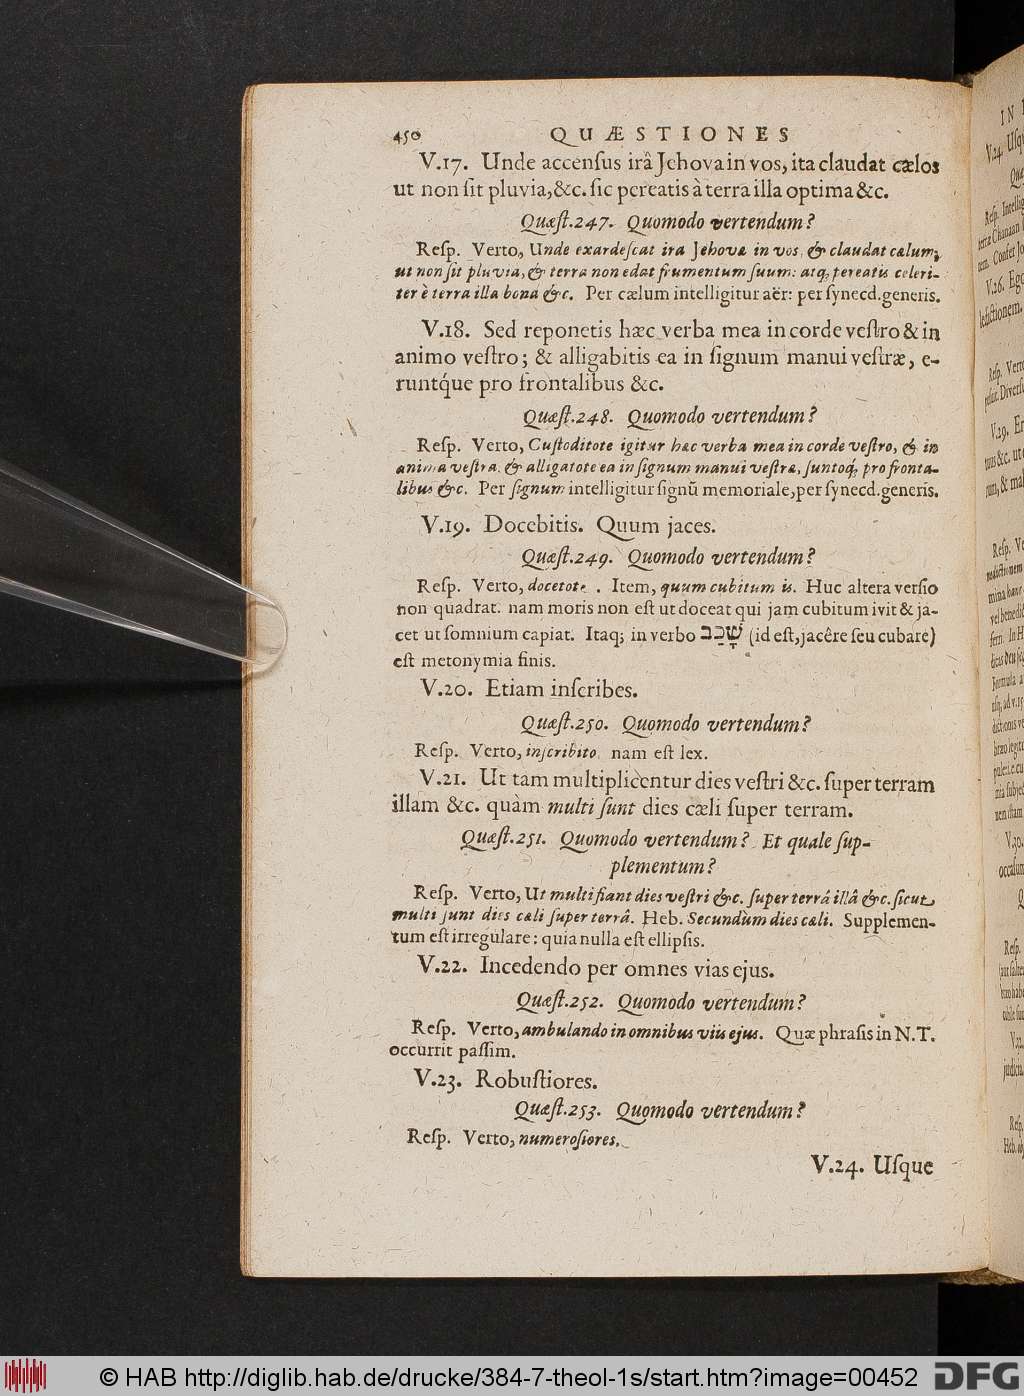 450 QUÆSTIONES
V.17. Unde accenſus irâ Jehova in vos, ita claudat cælos
ut non ſit pluvia, &c. ſic pereatis à terra illa optima &c.
Quæſt.247. Quomodo vertendum?
Reſp. Verto, Unde exardeſcat ira Jehovæ in vos, & claudat cælum,
ut non ſit pluvia, & terra non edat frumentum ſuum: atq; pereatis celeri-
ter è terra illa bona &c. Per cælum intelligitur aër: per ſynecd. generis.
V.18. Sed reponetis hæc verba mea in corde veſtro & in
animo veſtro; & alligabitis ea in ſignum manui veſtræ, e-
runtq́ue pro frontalibus &c.
Quæſt.248. Quomodo vertendum?
Reſp. Verto, Cuſtoditote igitur hæc verba mea in corde veſtro, & in
anima veſtra, & alligatote ea in ſignum manui veſtræ, ſuntoq́; pro fronta-
libus &c. Per ſignum intelligitur ſignũ memoriale, per ſynecd. generis.
V.19. Docebitis. Quum jaces.
Quæſt.249. Quomodo vertendum?
Reſp. Verto, docetote. Item, quum cubitum is. Huc altera verſio
non quadrat. nam moris non eſt ut doceat qui jam cubitum ivit & ja-
cet ut ſomnium capiat. Itaq; in verbo שָׁכַב (id eſt, jacêre ſeu cubare)
eſt metonymia finis.
V.20. Etiam inſcribes.
Quæſt.250. Quomodo vertendum?
Reſp. Verto, inſcribito. nam eſt lex.
V.21. Ut tam multiplicentur dies veſtri &c. ſuper terram
illam &c. quàm multi ſunt dies cæli ſuper terram.
Quæſt.251. Quomodo vertendum? Et quale ſup-
plementum?
Reſp. Verto, Ut multi fiant dies veſtri &c. ſuper terrâ illâ &c. ſicut
multi ſunt dies cæli ſuper terrâ. Heb. Secundùm dies cæli. Supplemen-
tum eſt irregulare: quia nulla eſt ellipſis.
V.22. Incedendo per omnes vias ejus.
Quæſt.252. Quomodo vertendum?
Reſp. Verto, ambulando in omnibus viis ejus. Quæ phraſis in N.T.
occurrit paſſim.
V.23. Robuſtiores.
Quæſt.253. Quomodo vertendum?
Reſp. Verto, numeroſiores.
V.24. Uſque
© HAB http://diglib.hab.de/drucke/384-7-theol-1s/start.htm?image=00452
DFG